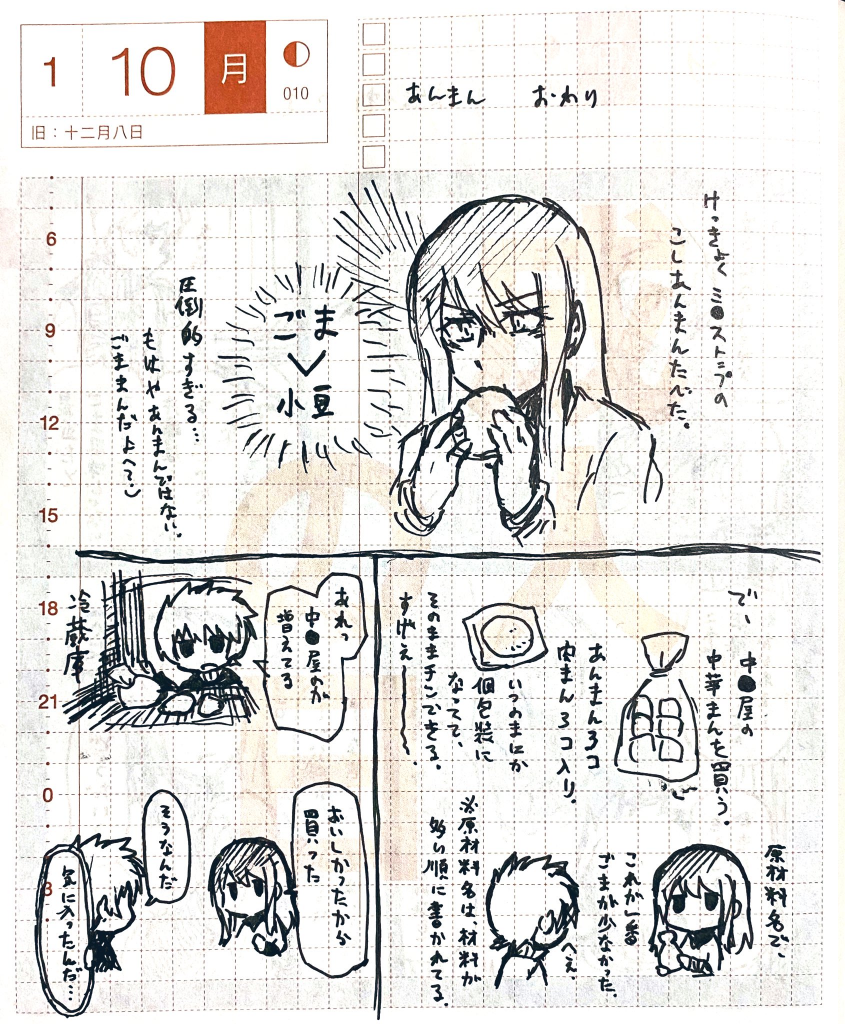 1
10
月
010
旧：十二月八日
あんまん　おわり
けっきょく ミ●ストップの
こしあんまんたべた。
ごま＞小豆
圧倒的すぎる…
もはやあんまんではない。
ごままんだよ（？）
で、中●屋の
中華まんを買う。
あんまん3コ
肉まん3コ入り。
いつのまにか
個包装に
なってて、
そのままチンできる。
すげぇーーー。
原材料名で、
これが1番
ごまが少なかった。
へぇ。
※原材料名は、材料が
多い順に書かれてる。
あれっ
中●屋のが
増えてる
冷蔵庫
おいしかったから
買った
そうなんだ
気に入ったんだ…
6
9
12
15
18
21
0
3